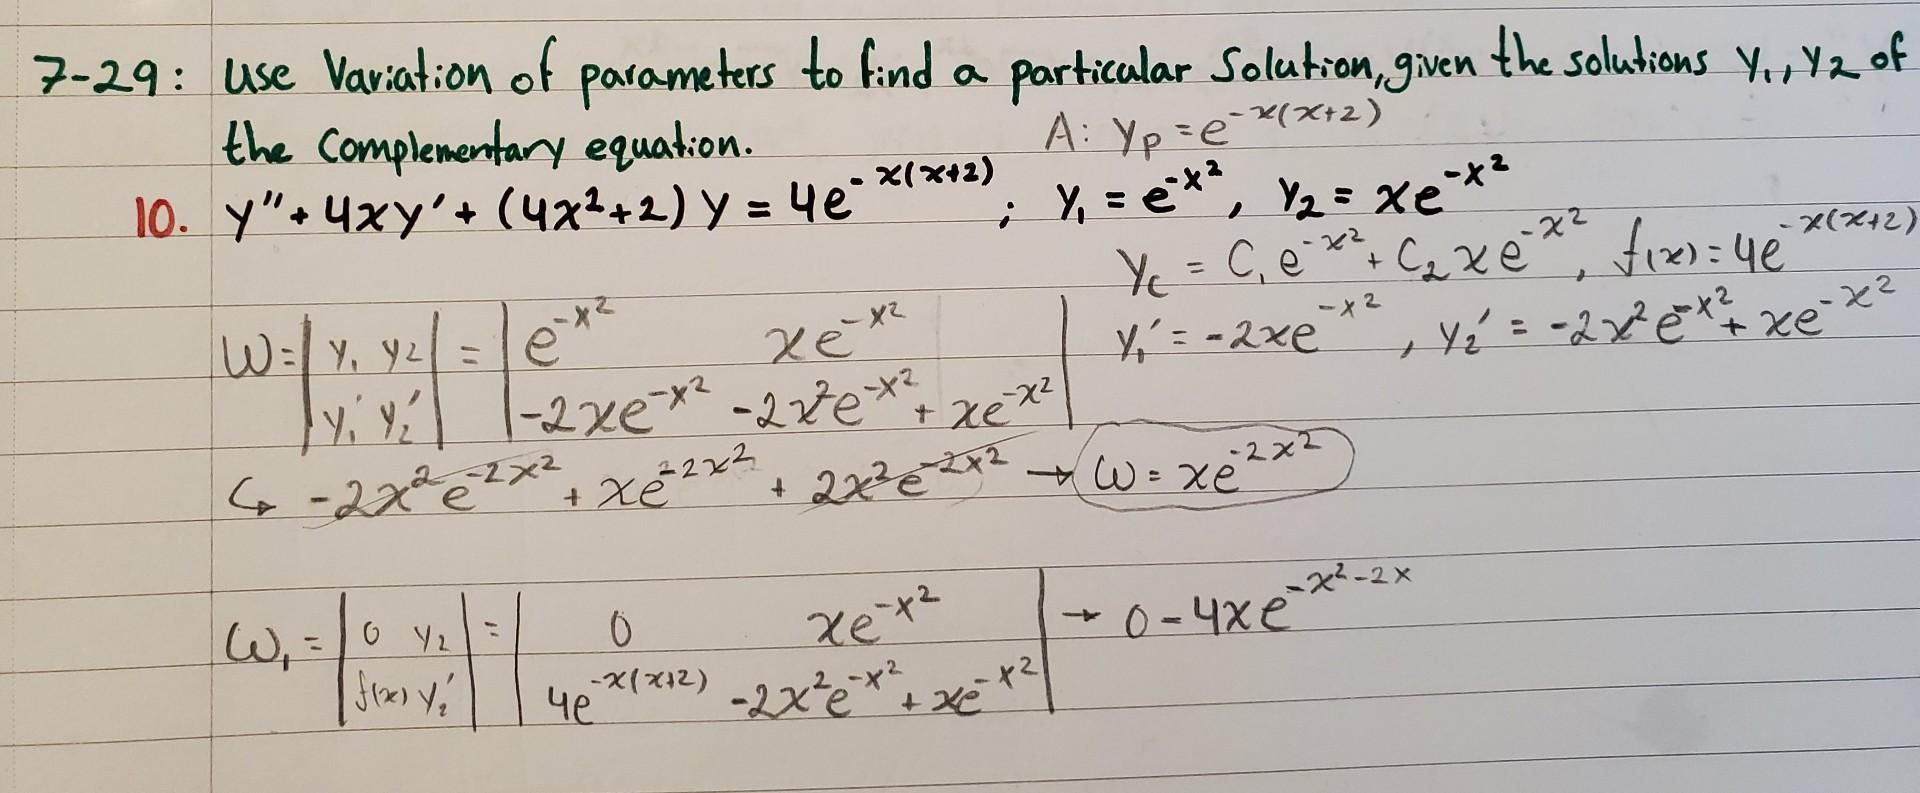 7-29: Use Variation of parameters to find a particular Solution, given the solutions y₁, y₂ of
the Complementary equation. A: yp = e^-x(x+2)
10. y'' + 4xy' + (4x²+2) y = 4e^-x(x+2) ; y₁ = e^-x², y₂ = xe^-x²
yc = C₁e^-x² + C₂xe^-x², f(x) = 4e^-x(x+2)
W = |y₁ y₂| = |e^-x² xe^-x²| y₁' = -2xe^-x², y₂' = -2x²e^-x² + xe^-x²
|y₁' y₂'| |-2xe^-x² -2x²e^-x² + xe^-x²|
↳ -2x²e^-2x² + xe^-2x² + 2x²e^-2x² → W = xe^-2x²
W₁ = |0 y₂| = |0 xe^-x²| → 0 - 4xe^-x²-2x
|f(x) y₂'| |4e^-x(x+2) -2x²e^-x² + xe^-x²|